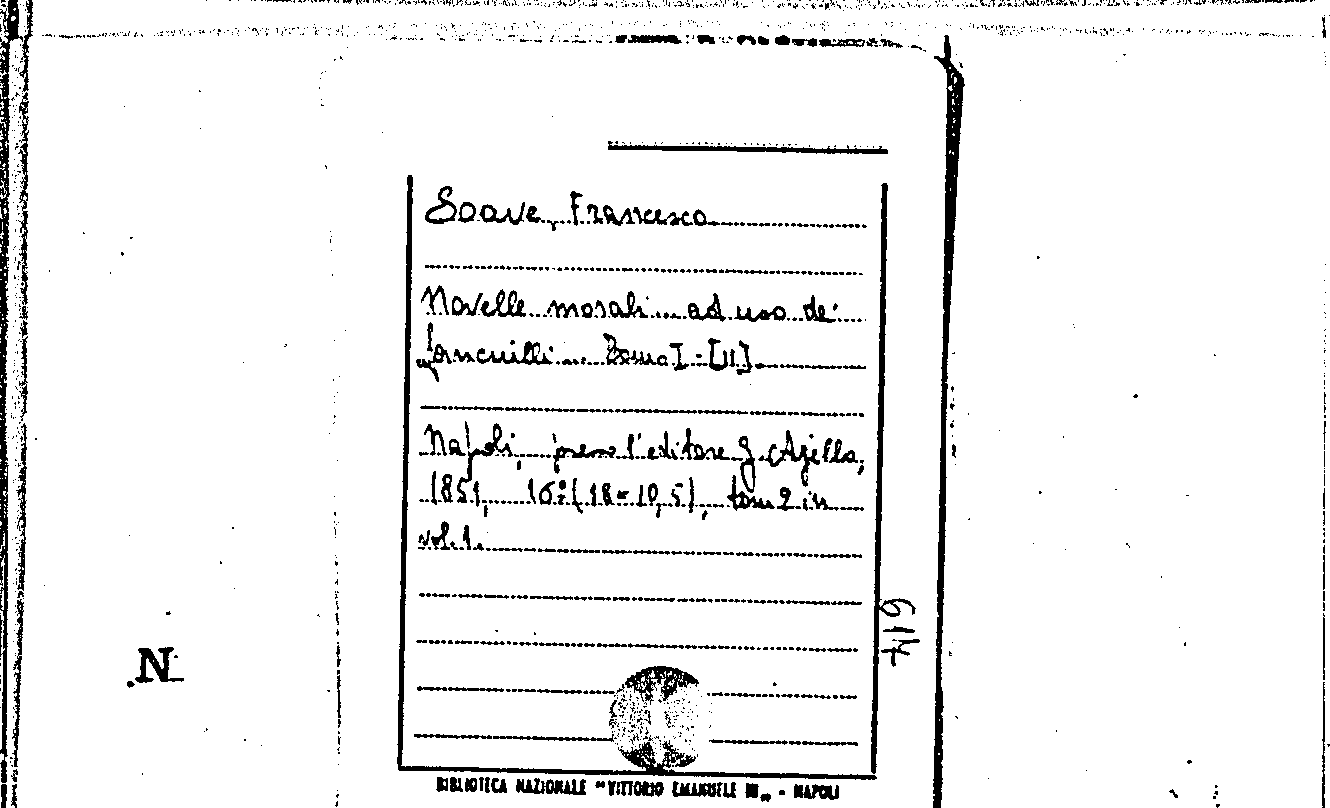 Soave, Francesco
Novelle morali... ad uso de'
fanciulli... Tomo I-[II].
Napoli, presso l'editore G. Azilla,
1851, 16º (18×10,5), tomi 2 in
vol. 1.
614
N
BIBLIOTECA NAZIONALE "VITTORIO EMANUELE III„ - NAPOLI